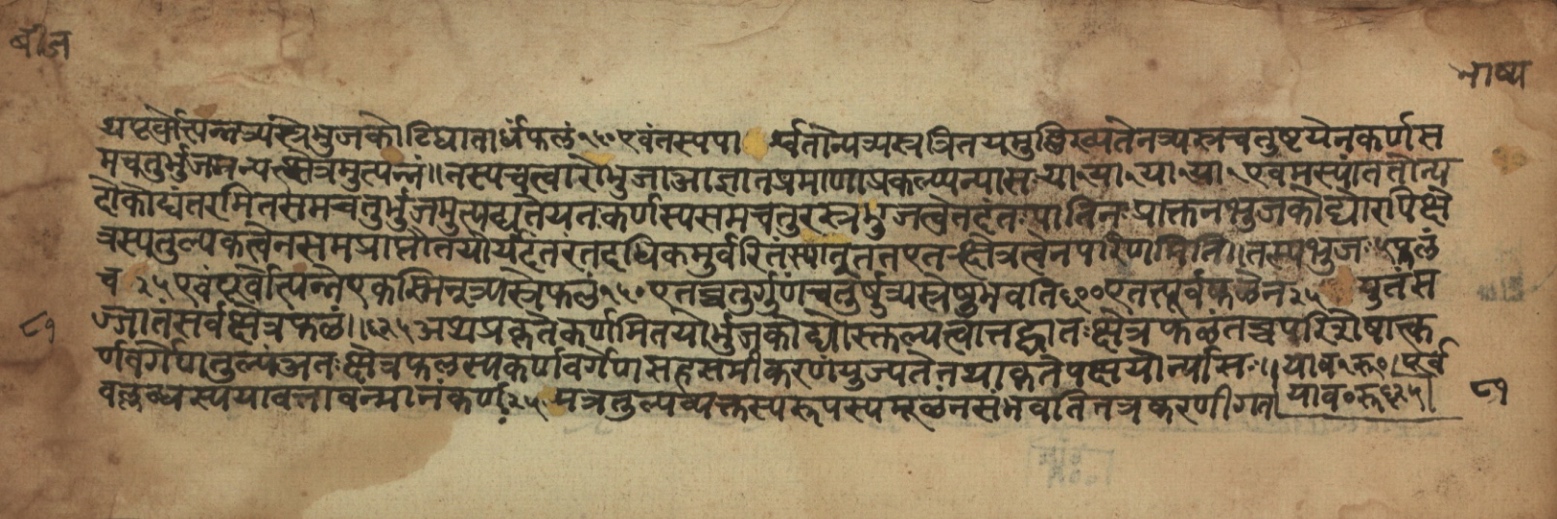 बीज
भाष्य
यपूर्वोत्पन्नत्र्यस्रेभुजकोटिघातार्धंफलं१५०एवंतस्यपा र्श्वतोन्यत्र्यस्रत्रितयमुल्लिख्यतेनत्र्यस्रचतुष्टयेनकर्णस
मचतुर्भुजमन्यत्क्षेत्रमुत्पन्नं॥तस्यचत्वारोभुजाआज्ञातप्रमाणाप्रकल्प्यन्यासः या१या१या१या१एवमस्यांततोन्य
दोकोद्यंतरमितसमचतुर्भुजमुत्पद्यतेयतःकर्णस्यसमचतुरस्रेभुजत्वेतदंतःपातिनःप्राक्तनभुजकोट्योरपिक्षे
त्रस्यतुल्यकत्वेनसमप्राप्तोतयोर्यदंतरतदधिकमुर्वरितंस्यात्तत्तएतत्क्षेत्रत्वेनपरिणमिति॥तस्यभुजः५फलं
च २५एवंपूर्वोत्पन्नेएकस्मिन्त्र्यस्रेफलं१५०एतच्चतुर्गुणंचतुर्षुत्र्यस्रेषुभवति६००एतत्पूर्वफलेन२५ युतंस
ज्जातंसर्वक्षेत्रफलं॥६२५अथप्रकृतेकर्णमितयोर्भुजकोट्योस्तुल्यत्वात्तद्घातःक्षेत्रफलंतच्चपरिशेषात्क
र्णवर्गेणतुल्यंअतःक्षेत्रफलस्यकर्णवर्गेणसहसमीकरणंयुज्यतेतथाकृतेपक्षयोर्न्यासः॥याव१रू०पूर्व
वल्लब्धस्ययावत्तावन्मानंकर्णः२५यत्रतुल्यव्यक्तस्यरूपस्यमूलंनसंभवतितत्रकरणीगत याव०रू६२५
८१
८१